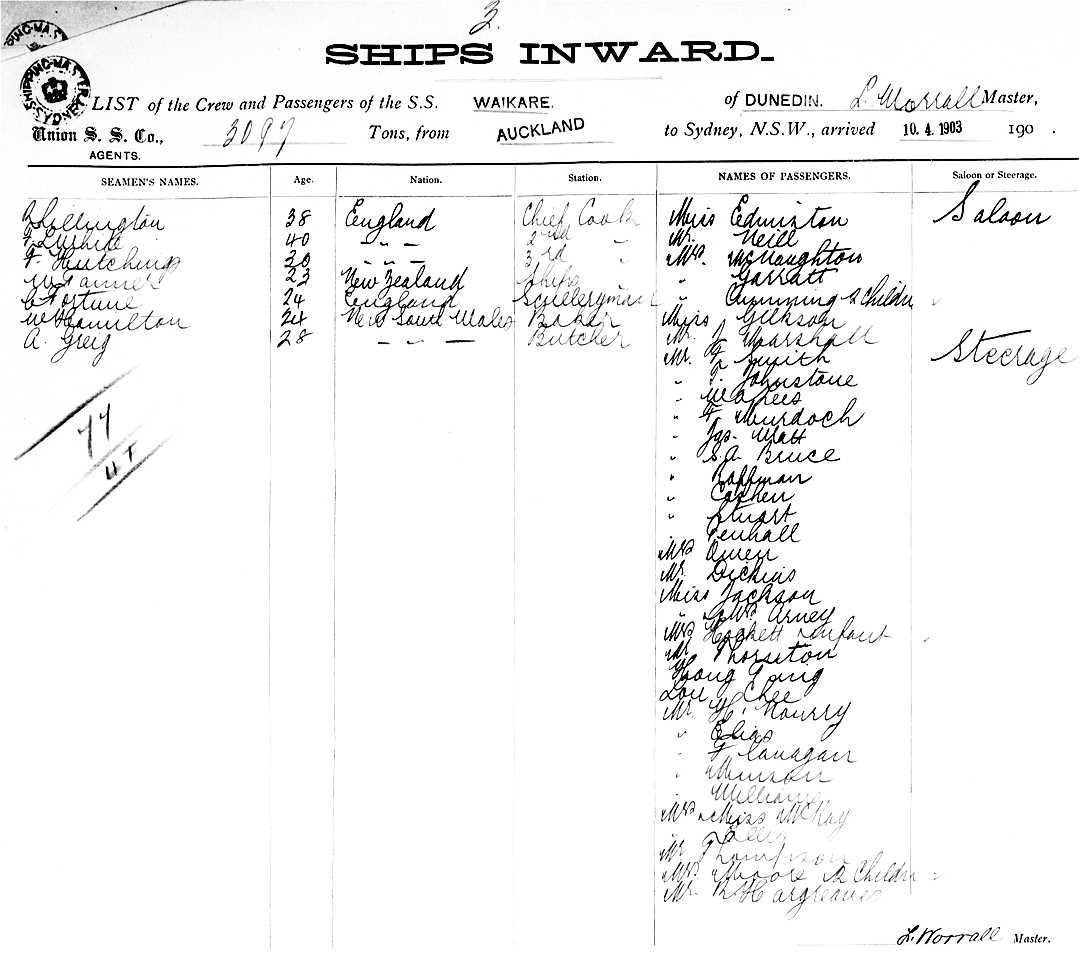 2.
SHIPPING MASTER SYDNEY
SHIPS INWARD.
LIST of the Crew and Passengers of the S.S. WAIKARE. of DUNEDIN. L. Worrall Master,
Union S. S. Co., 3097 Tons, from AUCKLAND to Sydney, N.S.W., arrived 10.4.1903 190 .
AGENTS.
SEAMEN'S NAMES. Age. Nation. Station. NAMES OF PASSENGERS. Saloon or Steerage.
Shillington 38 England Chief Cook Miss Edminton Saloon
40 " " - 2nd " Mr. Neill
F. Hutchings 30 " " - 3rd " Mrs. McNaughton
W Tanner 23 New Zealand " Garratt
C Fortune 24 England Sculleryman " Cumming 2 Childn
W Hamilton 24 New South Wales Baker Miss Gilkson
A. Greig 28 - " - Butcher Mr. J Marshall
Mr. F. Smith Steerage
" T. Johnstone
" W A Rees
" F Murdoch
" Jas. Matt
" S.A. Bruce
" Hoffman
"
" Stuart
" Penhall
Mrs Owen
Mr. Dickins
Miss Jackson
" & Mrs. Arney
Mrs Hackett & Infant
Mr Thornton
Hong
Lou Chee
Mr. H. Nourry
" Elias
" Flanagan
" Munson
" Williams
Mrs & Miss McKay
"
Mr Thompson
Mrs. Moore & 2 Childn
Mr. R Hargreaves
77
47
L. Worrall Master.